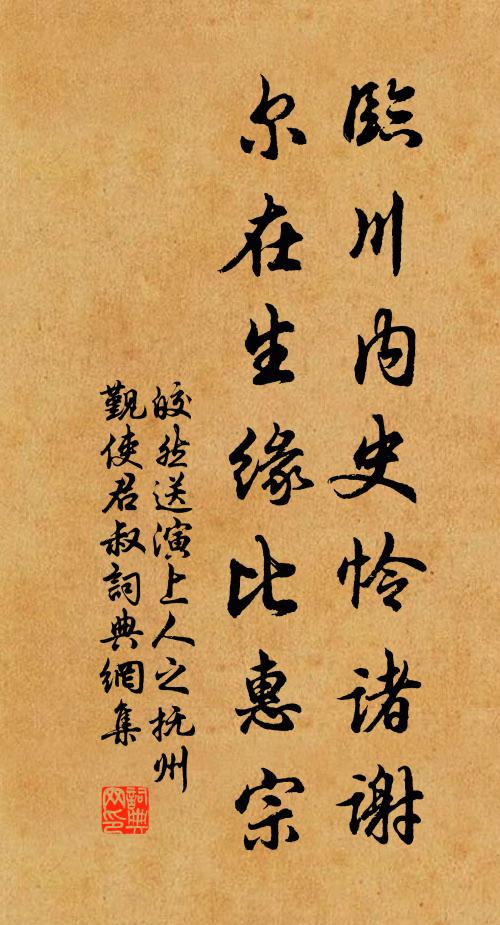 臨川内史怜諸謝
尔在生緣比惠宗
皎然送演上人之抚州
觐使君叔詞典網集
詞典网印